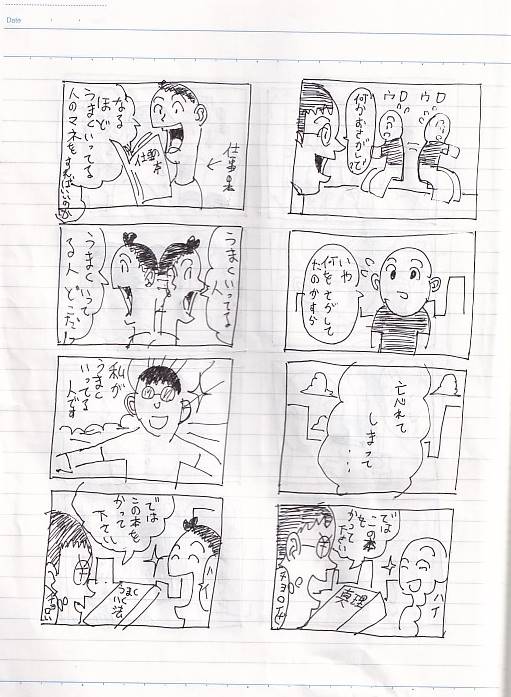 Date
ウロ
ウロ
何かおさがしで?
いや
何をさがして
たのかすら
忘れて
しまって
…
では
この本
を
かって
下さい
ハイ
真理
チョロイ
なる
ほど
うまくいってる
人のマネをすればいいのか
うまくいってる
人
うまくいって
る人 どこだ!?
私が
うまく
いってる
人です
では
この本を
かって
下さい
ハイ
うまく
いく
法
チョロい